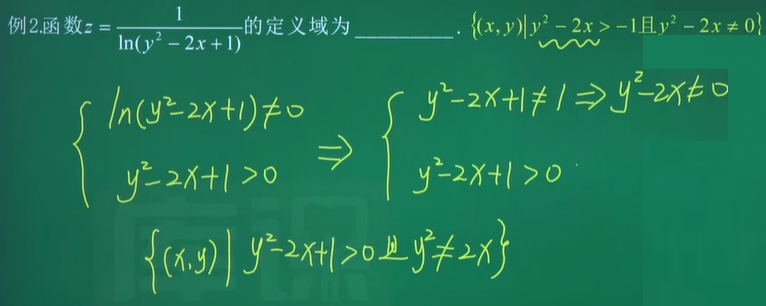 例2.函数z = 1/ln(y² − 2x + 1) 的定义域为________. {(x, y)|y² − 2x > −1且y² − 2x ≠ 0}
{ ln(y²-2x+1)≠0 ⇒ { y²-2x+1≠1 ⇒ y²-2x≠0
y²-2x+1>0 y²-2x+1>0
{(x,y)| y²-2x+1>0且y²≠2x}